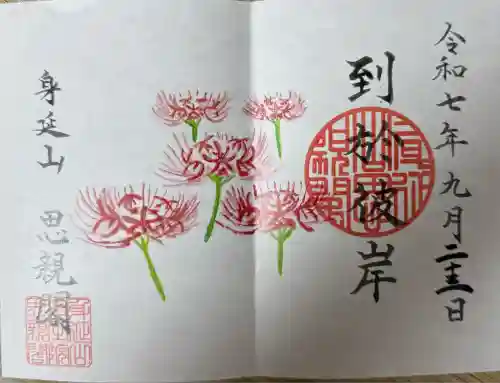 令和七年九月二十三日
到於彼岸
身延山 思親閣